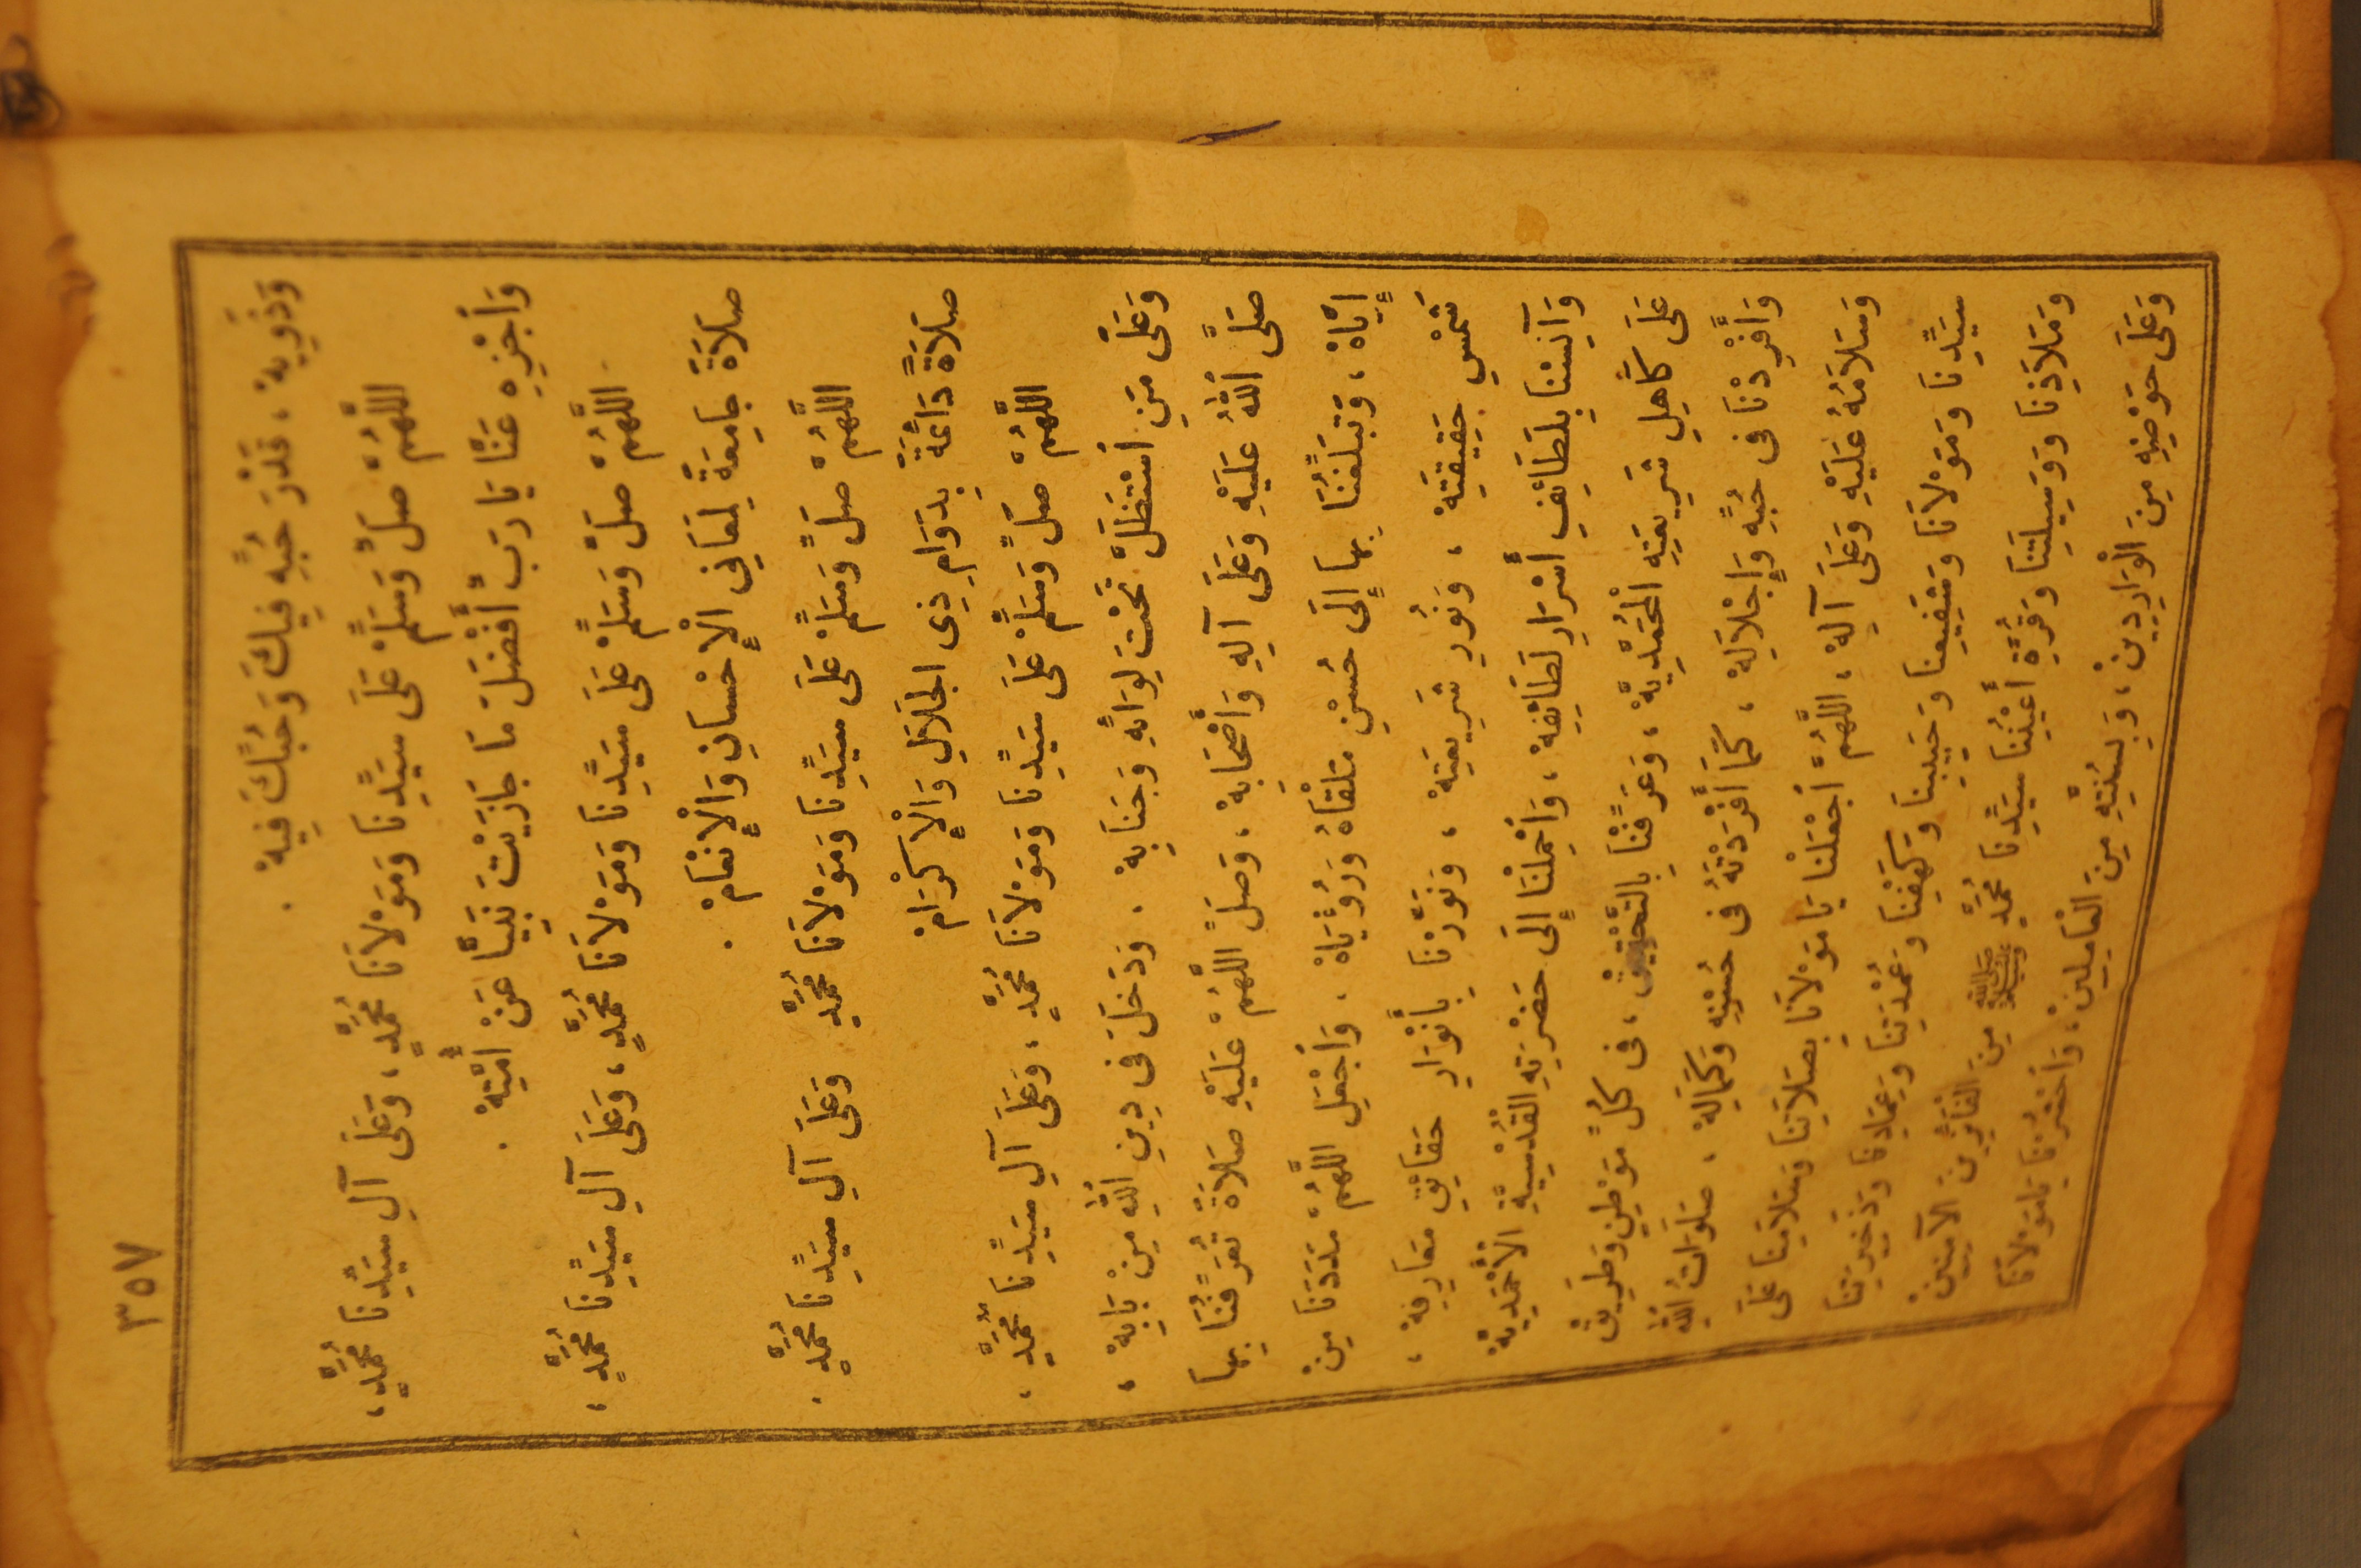 ٣٥٧
وَذَوِيهْ ، قَدْرَ حُبِّهِ فِيكَ وَحُبِّكَ فِيهْ .
اللَّهُمَّ صَلِّ وَسَلِّمْ عَلَى سَيِّدِنَا وَمَوْلَانَا مُحَمَّدٍ ، وَعَلَى آلِ سَيِّدِنَا مُحَمَّدٍ ،
وَاجْزِهِ عَنَّا يَا رَبِّ أَفْضَلَ مَا جَازَيْتَ نَبِيًّا عَنْ أُمَّتِهْ .
اللَّهُمَّ صَلِّ وَسَلِّمْ عَلَى سَيِّدِنَا وَمَوْلَانَا مُحَمَّدٍ ، وَعَلَى آلِ سَيِّدِنَا مُحَمَّدٍ ،
صَلَاةً جَامِعَةً لِمَعَانِي الْإِحْسَانِ وَالْإِنْعَامْ .
اللَّهُمَّ صَلِّ وَسَلِّمْ عَلَى سَيِّدِنَا وَمَوْلَانَا مُحَمَّدٍ وَعَلَى آلِ سَيِّدِنَا مُحَمَّدٍ .
صَلَاةً دَائِمَةً بِدَوَامِ ذِى الجَلَالِ وَالْإِكْرَامْ
اللَّهُمَّ صَلِّ وَسَلِّمْ عَلَى سَيِّدِنَا وَمَوْلَانَا مُحَمَّدٍ ، وَعَلَى آلِ سَيِّدِنَا مُحَمَّدٍ ،
وَعَلَى مَنِ اسْتَظَلَّ تَحْتَ لِوَائِهِ وَجَنَابِهْ . وَدَخَلَ فى دِينِ اللهِ مِنْ بَابِهْ ،
صَلَّى اللهُ عَلَيْهِ وَعَلَى آلِهِ وَأَصْحَابِهْ ، وَصَلِّ اللَّهُمَّ عَلَيْهِ صَلَاةً تُعَرِّفُنَا بِهَا
إِيَّاهْ ، وَتُبَلِّغُنَا بِهَا إِلَى حُسْنِ مَلْقَاهُ وَرُؤْيَاهْ . وَاجْعَلِ اللَّهُمَّ مَدَدَنَا مِنْ
شَمْسِ حَقِيقَتِهْ ، وَنُورِ شَرِيعَتِهْ ، وَنَوِّرْنَا بِأَنْوَارِ حَقَائِقِ مَعَارِفِهْ ،
وَآنِسْنَا بِلَطَائِفِ أَسْرَارِ لَطَائِفِهْ ، وَاحْمِلْنَا إِلَى حَضْرَتِهِ الْقُدْسِيَّةِ الْأَحْمَدِيَّهْ
عَلَى كَاهِلِ شَرِيعَتِهِ الْمُحَمَّدِيَّهْ ، وَعَرِّفْنَا بِالتَّحْقِيقْ ، فى كُلِّ مَوْطِنٍ وَطَرِيقْ
وَأَفْرِدْنَا فى حُبِّهِ وَإِجْلَالِهْ ، كَمَا أَفْرَدْتَهُ فى حُسْنِهِ وَكَمَالِهْ ، صَلَوَاتُ اللهِ
وَسَلَامُهُ عَلَيْهِ وَعَلَى آلِهْ ، اللَّهُمَّ اجْعَلْنَا يَا مَوْلَانَا بِصَلَاتِنَا وَسَلَامِنَا عَلَى
سَيِّدِنَا وَمَوْلَانَا وَشَفِيعِنَا وَحَبِيبِنَا وَكَهْفِنَا وَعُمْدَتِنَا وَعِمَادِنَا وَذَخِيرَتِنَا
وَمَلَاذِنَا وَوَسِيلَتِنَا وَقُرَّةِ أَعْيُنِنَا سَيِّدِنَا مُحَمَّدٍ ﷺ مِنَ الْفَائِزِينَ الْآمِنِينْ
وَعَلَى حَوْضِهِ مِنَ الْوَارِدِينْ ، وَبِسُنَّتِهِ مِنَ الْعَامِلِينْ ، وَاحْشُرْنَا يَامَوْلَانَا